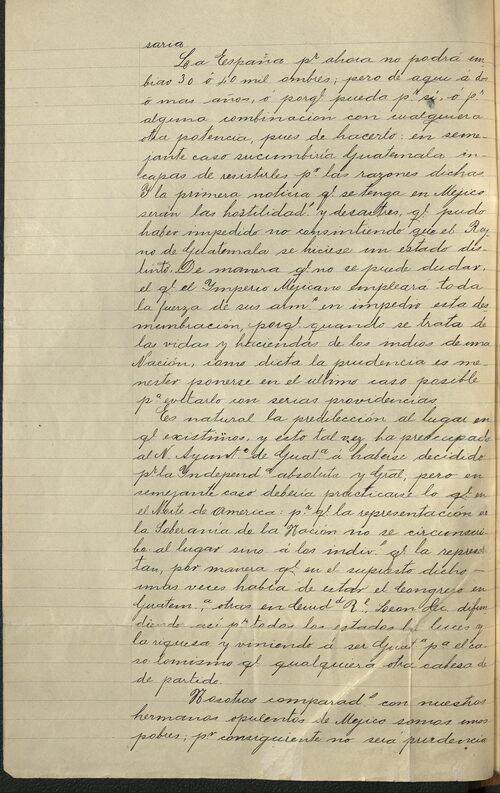 saria
La España pr. ahora no podrá em
biar 30 ó 40 mil ombres; pero de aqui á dos
o mas años, ó porql. pueda pr. sí, o pr.
alguna combinacion con cualquiera
otra potencia, pues de hacerlo: en seme
jante caso sucumbiria Guatemala in-
capas de resistirles pr. las razones dichas
Y la primera noticia ql. se tenga en Mejico
seran las hostilidads. y desastres, ql. pudo
haber impedido no consintiendo que el Rey
no de Guatemala se hiciese un estado dis-
tinto. De manera ql. no se puede dudar,
el ql. el Ymperio Mejicano empleara toda
la fuerza de sus arms. en impedir esta des
membración, porql. quando se trata de
las vidas y haciendas de los indios de una
Nación, como dicta la prudencia es me-
nester ponerse en el ultimo caso posible
pa. evitarlo con serias providencias
Es natural la predileccion al lugar en
ql. existimos, y esto tal vez ha preocupado
al N. Ayunto. de Guata. á haberse decidido
pr. la Independa. absoluta y Gral, pero en
semejante caso deberia practicarse lo ql. en
el Norte de America: pr. ql. la representación en
la Soberanía de la Nación no se circunscri
be al lugar sino á los indivs. ql. la represen
tan, por manera ql. en el supuesto dicho-
unas veces habia de estar el Congreso en
Guatema., otras en Ciudd. Rl., Leon &c. difun
diendo asi pr. todos los estados las luces y
la riquesa y viniendo á ser Guata. pa. el ca-
so lo mismo ql. qualquiera otra cabesa de
de partido.
Nosotros comparads. con nuestros
hermanos opulentos de Mejico somos unos
pobres; pr. consiguiente no será prudencia